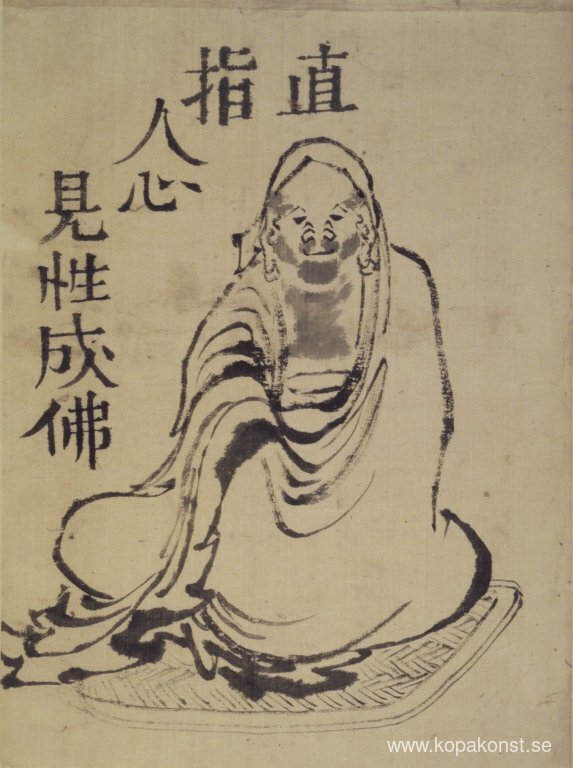 直指
人心
見性成佛
www.kopakonst.se